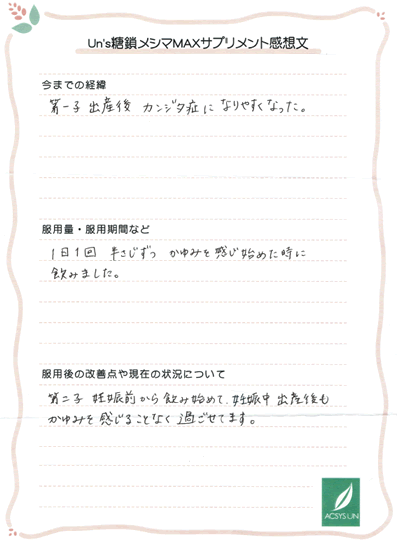 Un's糖鎖メシマMAXサプリメント感想文
今までの経緯
第一子 出産後 カンジタ症に なりやすくなった。
服用量・服用期間など
1日1回 半さじずつ かゆみを感じ始めた時に
飲みました。
服用後の改善点や現在の状況について
第二子 妊娠前から飲み始めて、妊娠中 出産後も
かゆみを感じることなく過ごせてます。
ACSYS UN